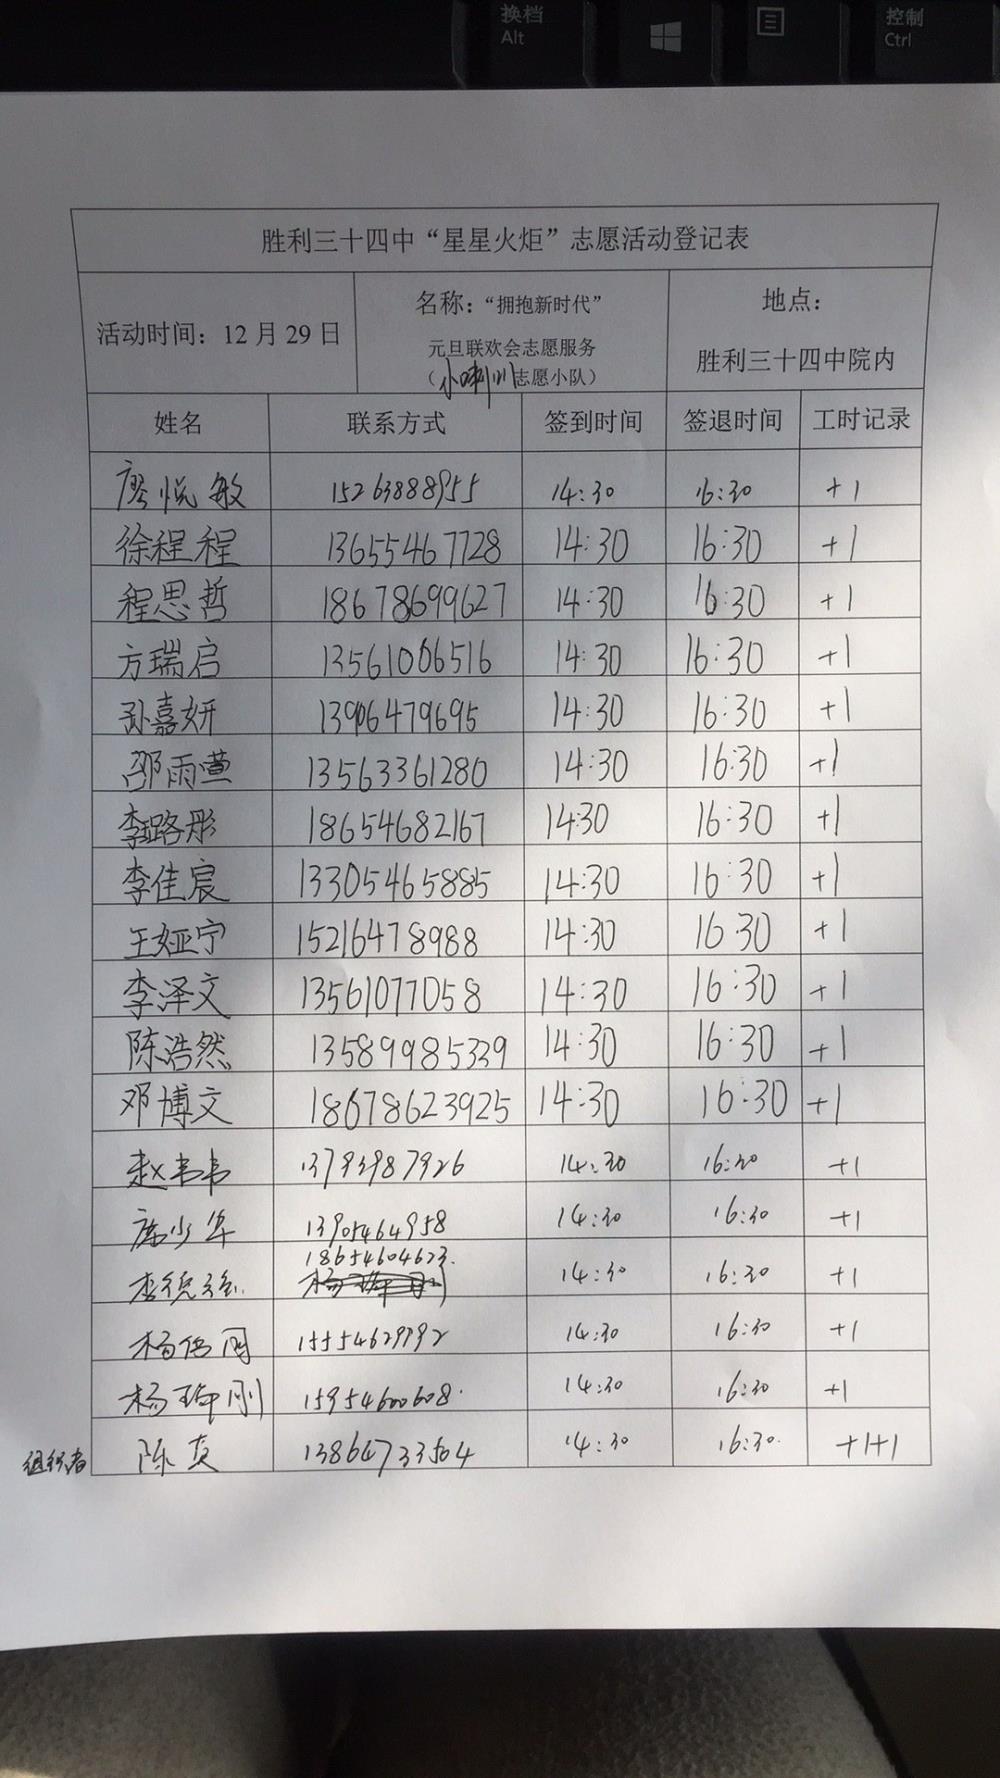 换档
Alt
控制
Ctrl
胜利三十四中“星星火炬”志愿活动登记表
活动时间：12月29日
名称：“拥抱新时代”
元旦联欢会志愿服务
（小喇叭志愿小队）
地点：
胜利三十四中院内
姓名 联系方式 签到时间 签退时间 工时记录
廖悦敏 15263888955 14:30 16:30 +1
徐程程 13655467728 14:30 16:30 +1
程思哲 18678699627 14:30 16:30 +1
方瑞启 13561006516 14:30 16:30 +1
孙嘉妍 13906479695 14:30 16:30 +1
邵雨萱 13563361280 14:30 16:30 +1
李璐彤 18654682167 14:30 16:30 +1
李佳宸 13305465885 14:30 16:30 +1
王娅宁 15216478988 14:30 16:30 +1
李泽文 13561077058 14:30 16:30 +1
陈浩然 13589985339 14:30 16:30 +1
邓博文 18678623925 14:30 16:30 +1
赵韦韦 13793987926 14:30 16:30 +1
少华 13905464958 14:30 16:30 +1
李德 18654604623. 14:30 16:30 +1
杨 15554629792 14:30 16:30 +1
杨玮刚 15954600608. 14:30 16:30 +1
组织者 陈 13864733504 14:30 16:30. +1+1